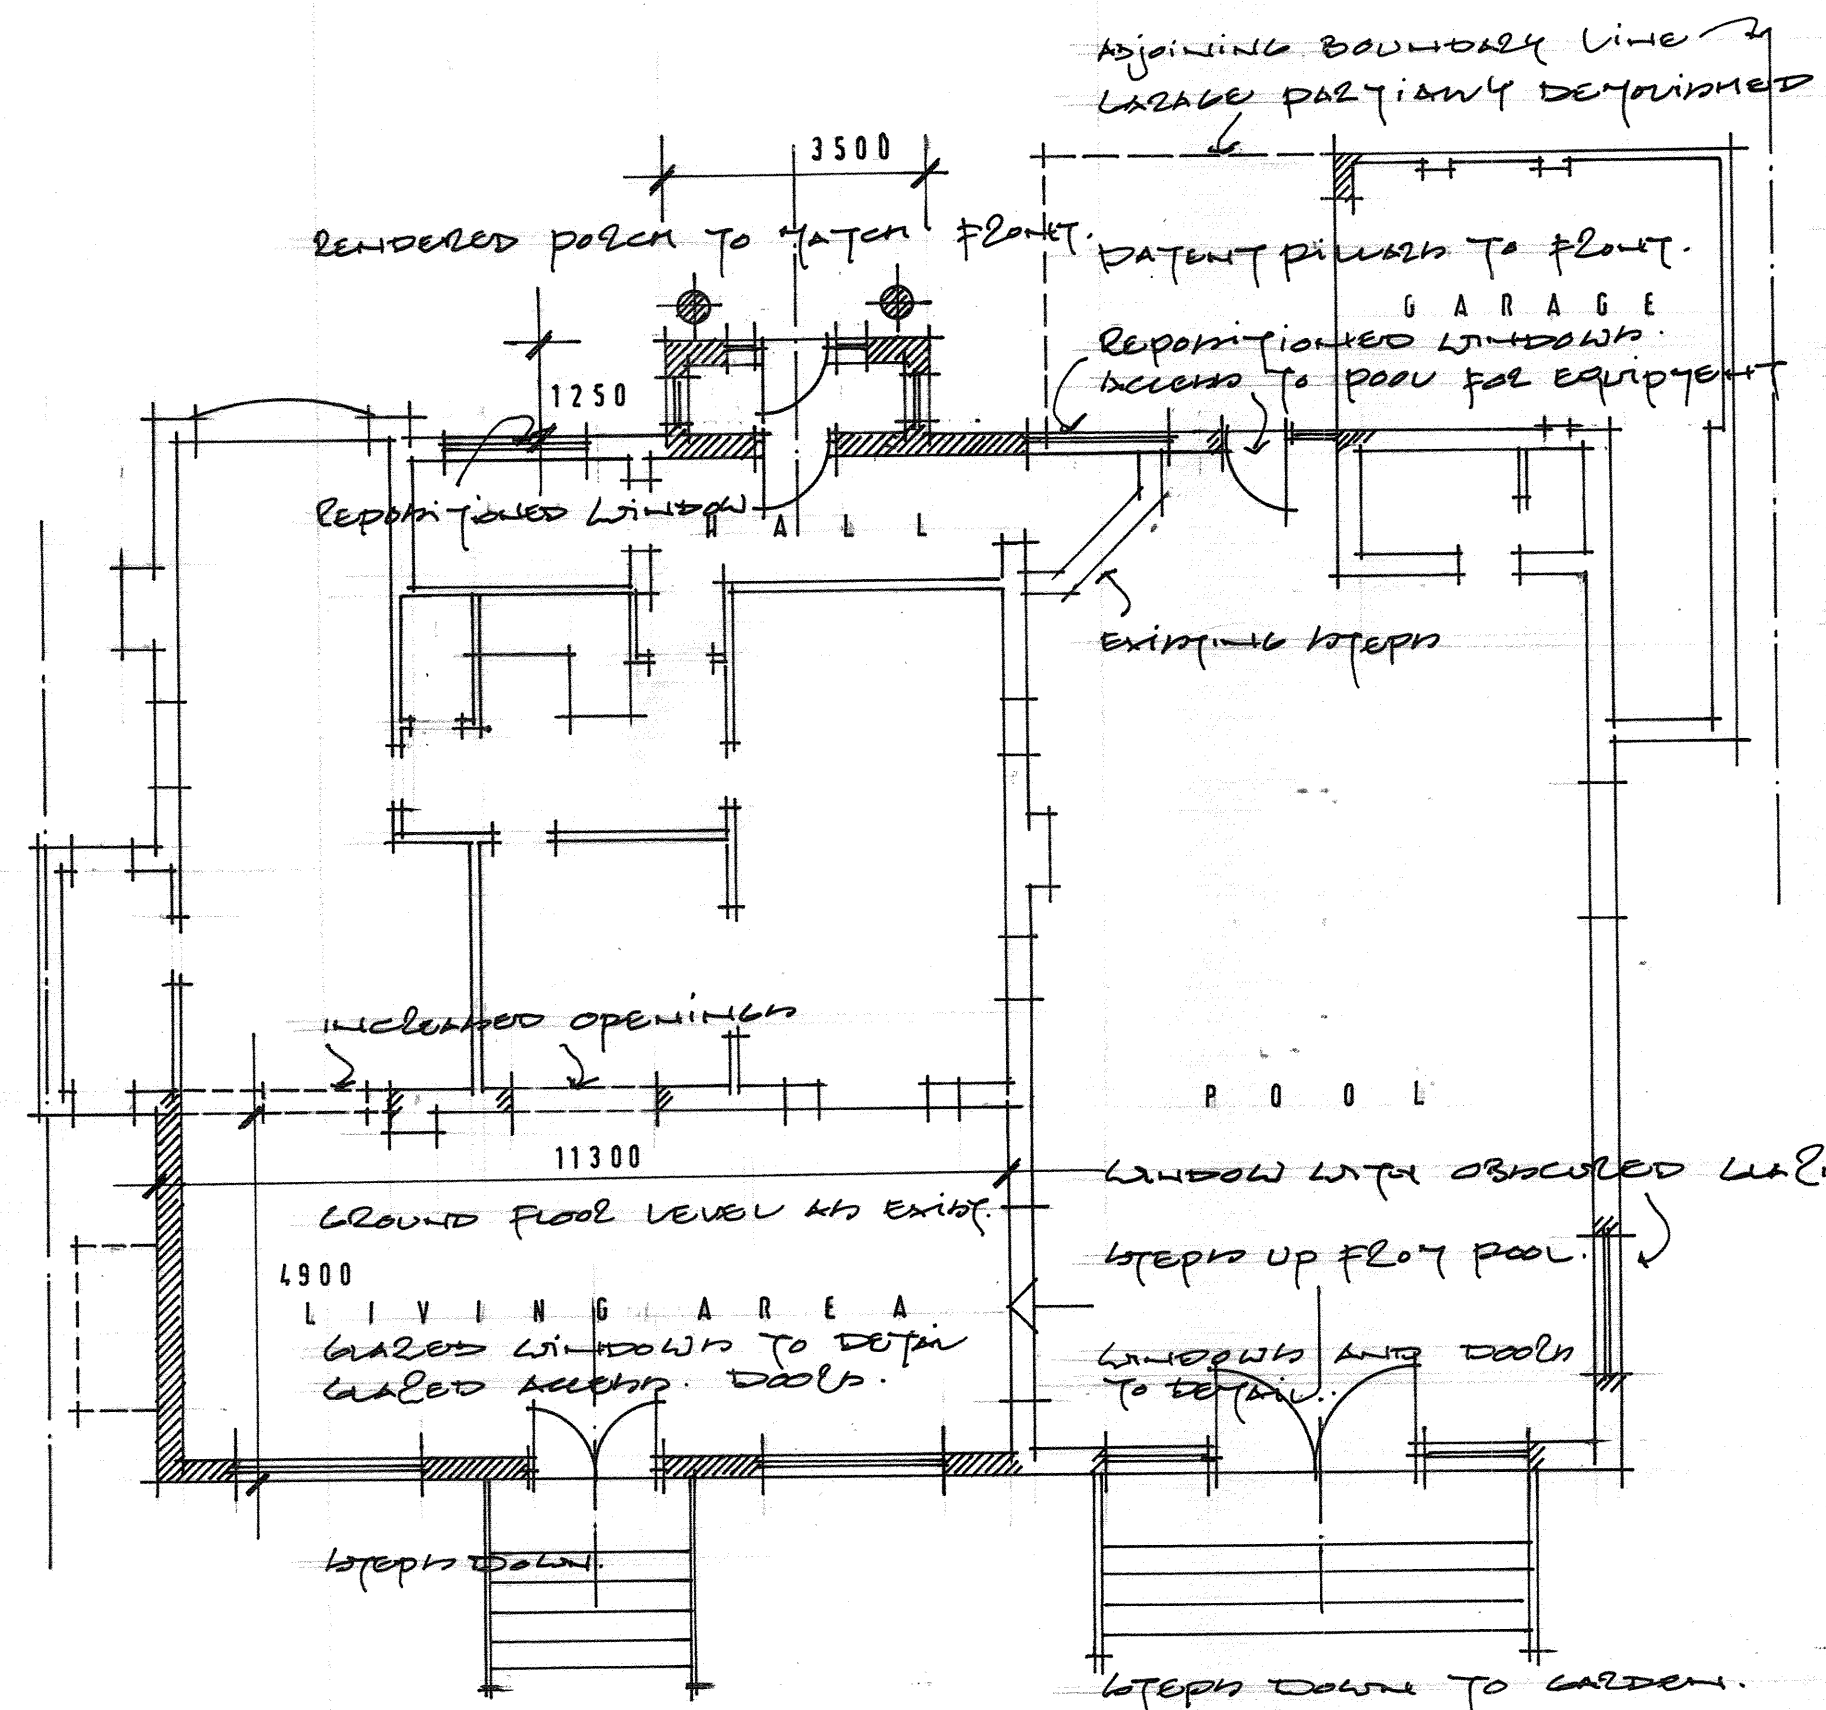 ADJOINING BOUNDARY LINE
GARAGE PARTIALLY DEMOLISHED
3500
RENDERED PORCH TO MATCH FRONT.
PATENT PILLARS TO FRONT.
GARAGE
REPOSITIONED WINDOWS.
ACCESS TO POOL FOR EQUIPMENT
1250
REPOSITIONED WINDOW
HALL
EXISTING STEPS
INCREASED OPENINGS
POOL
11300
WINDOW WITH OBSCURED
GROUND FLOOR LEVEL AS EXIST.
STEPS UP FROM POOL.
4900
LIVING AREA
GLAZED WINDOWS TO DETAIL
GLAZED ACCESS. DOORS.
WINDOWS AND DOORS
TO DETAIL.
STEPS DOWN.
STEPS DOWN TO GARDEN.